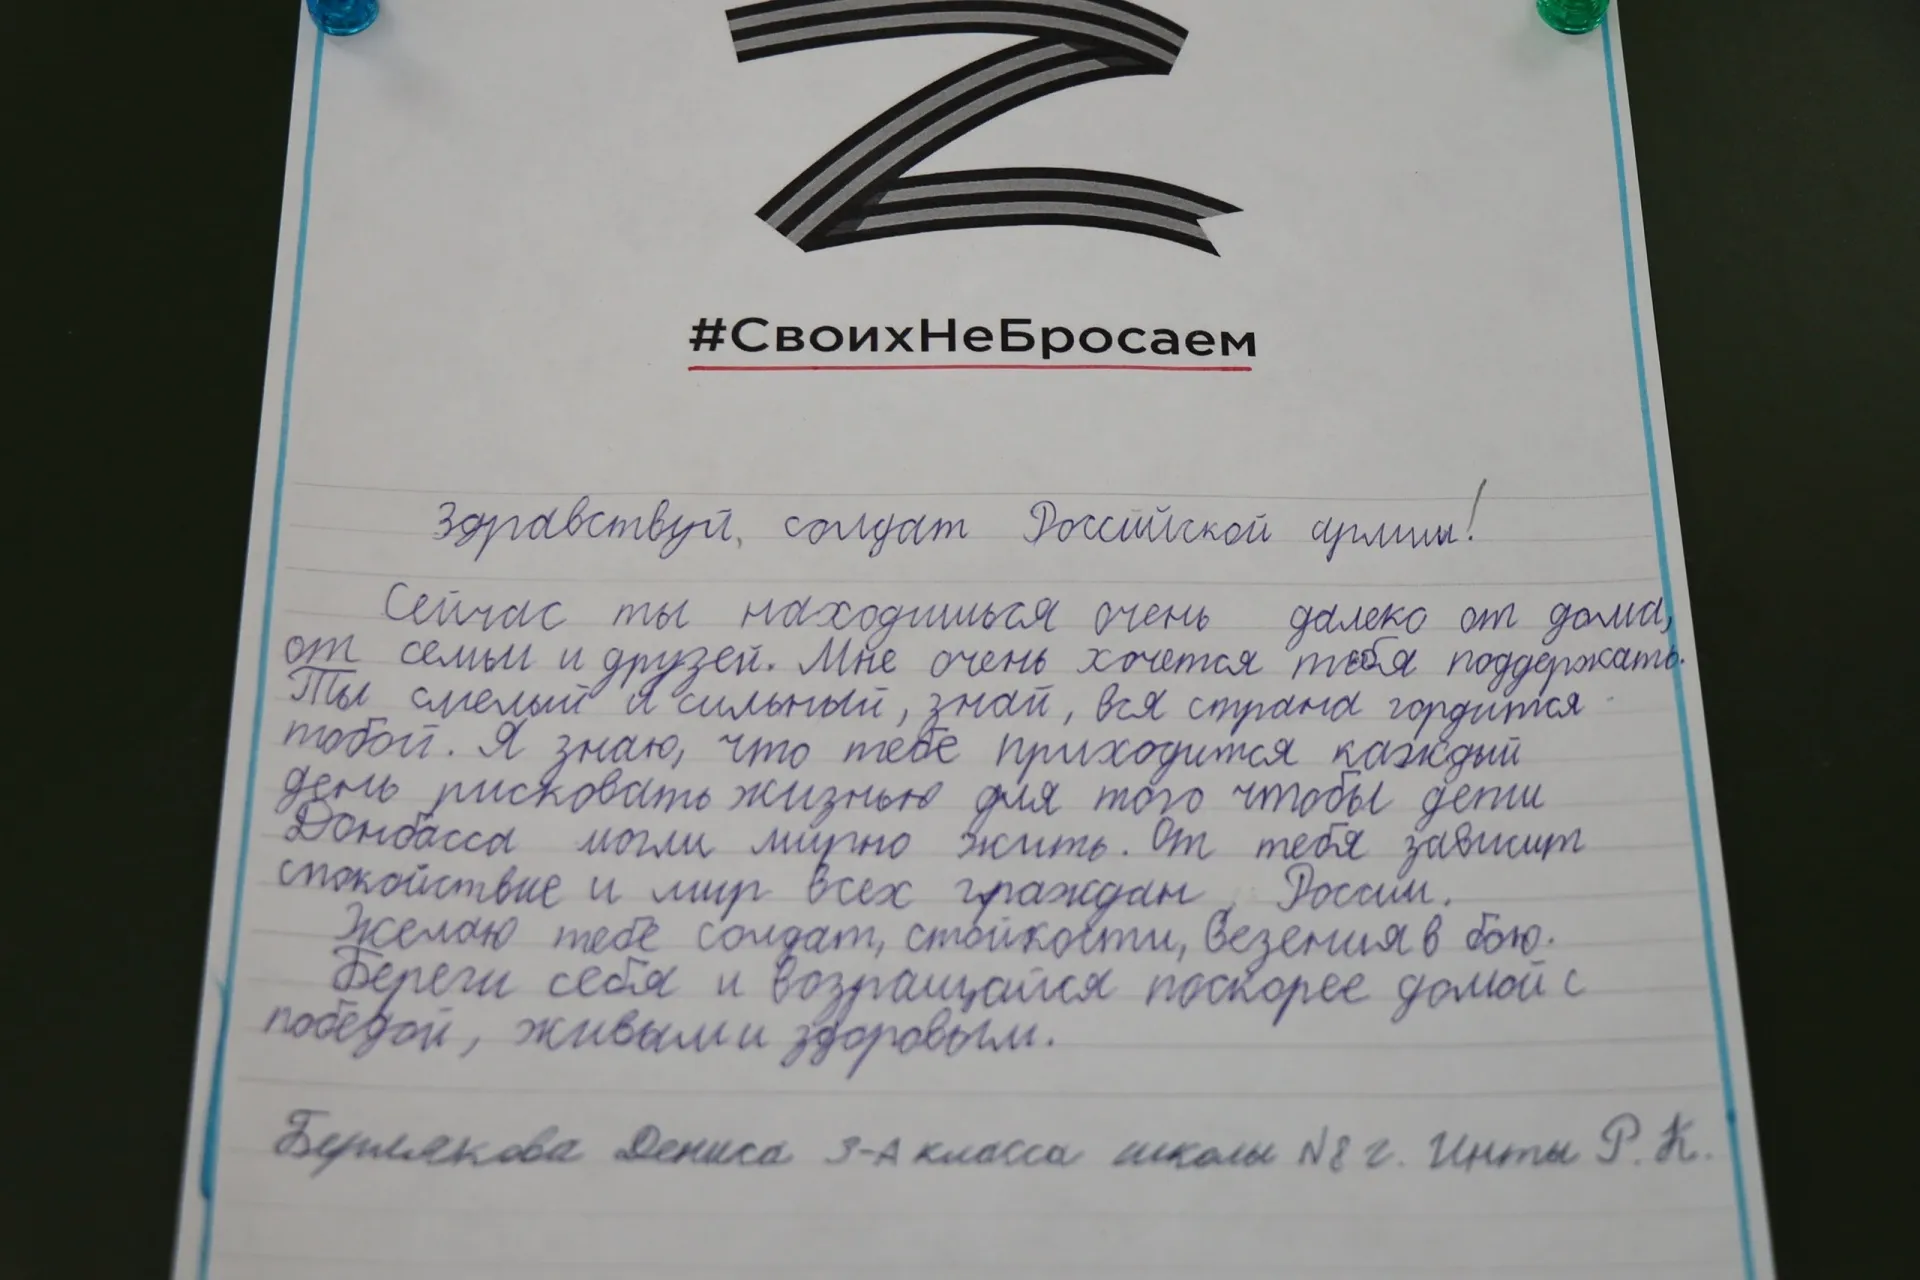 #СвоихНеБросаем
Здравствуй, солдат Российской армии!
Сейчас ты находишься очень далеко от дома,
от семьи и друзей. Мне очень хочется тебя поддержать.
Ты смелый и сильный, знай, вся страна гордится
тобой. Я знаю, что тебе приходится каждый
день рисковать жизнью для того чтобы дети
Донбасса могли мирно жить. От тебя зависит
спокойствие и мир всех граждан России.
Желаю тебе солдат, стойкости, везения в бою.
Береги себя и возращайся поскорее домой с
победой, живым и здоровым.
Дениса 3-А класса школы №8 г. Инты Р.К.